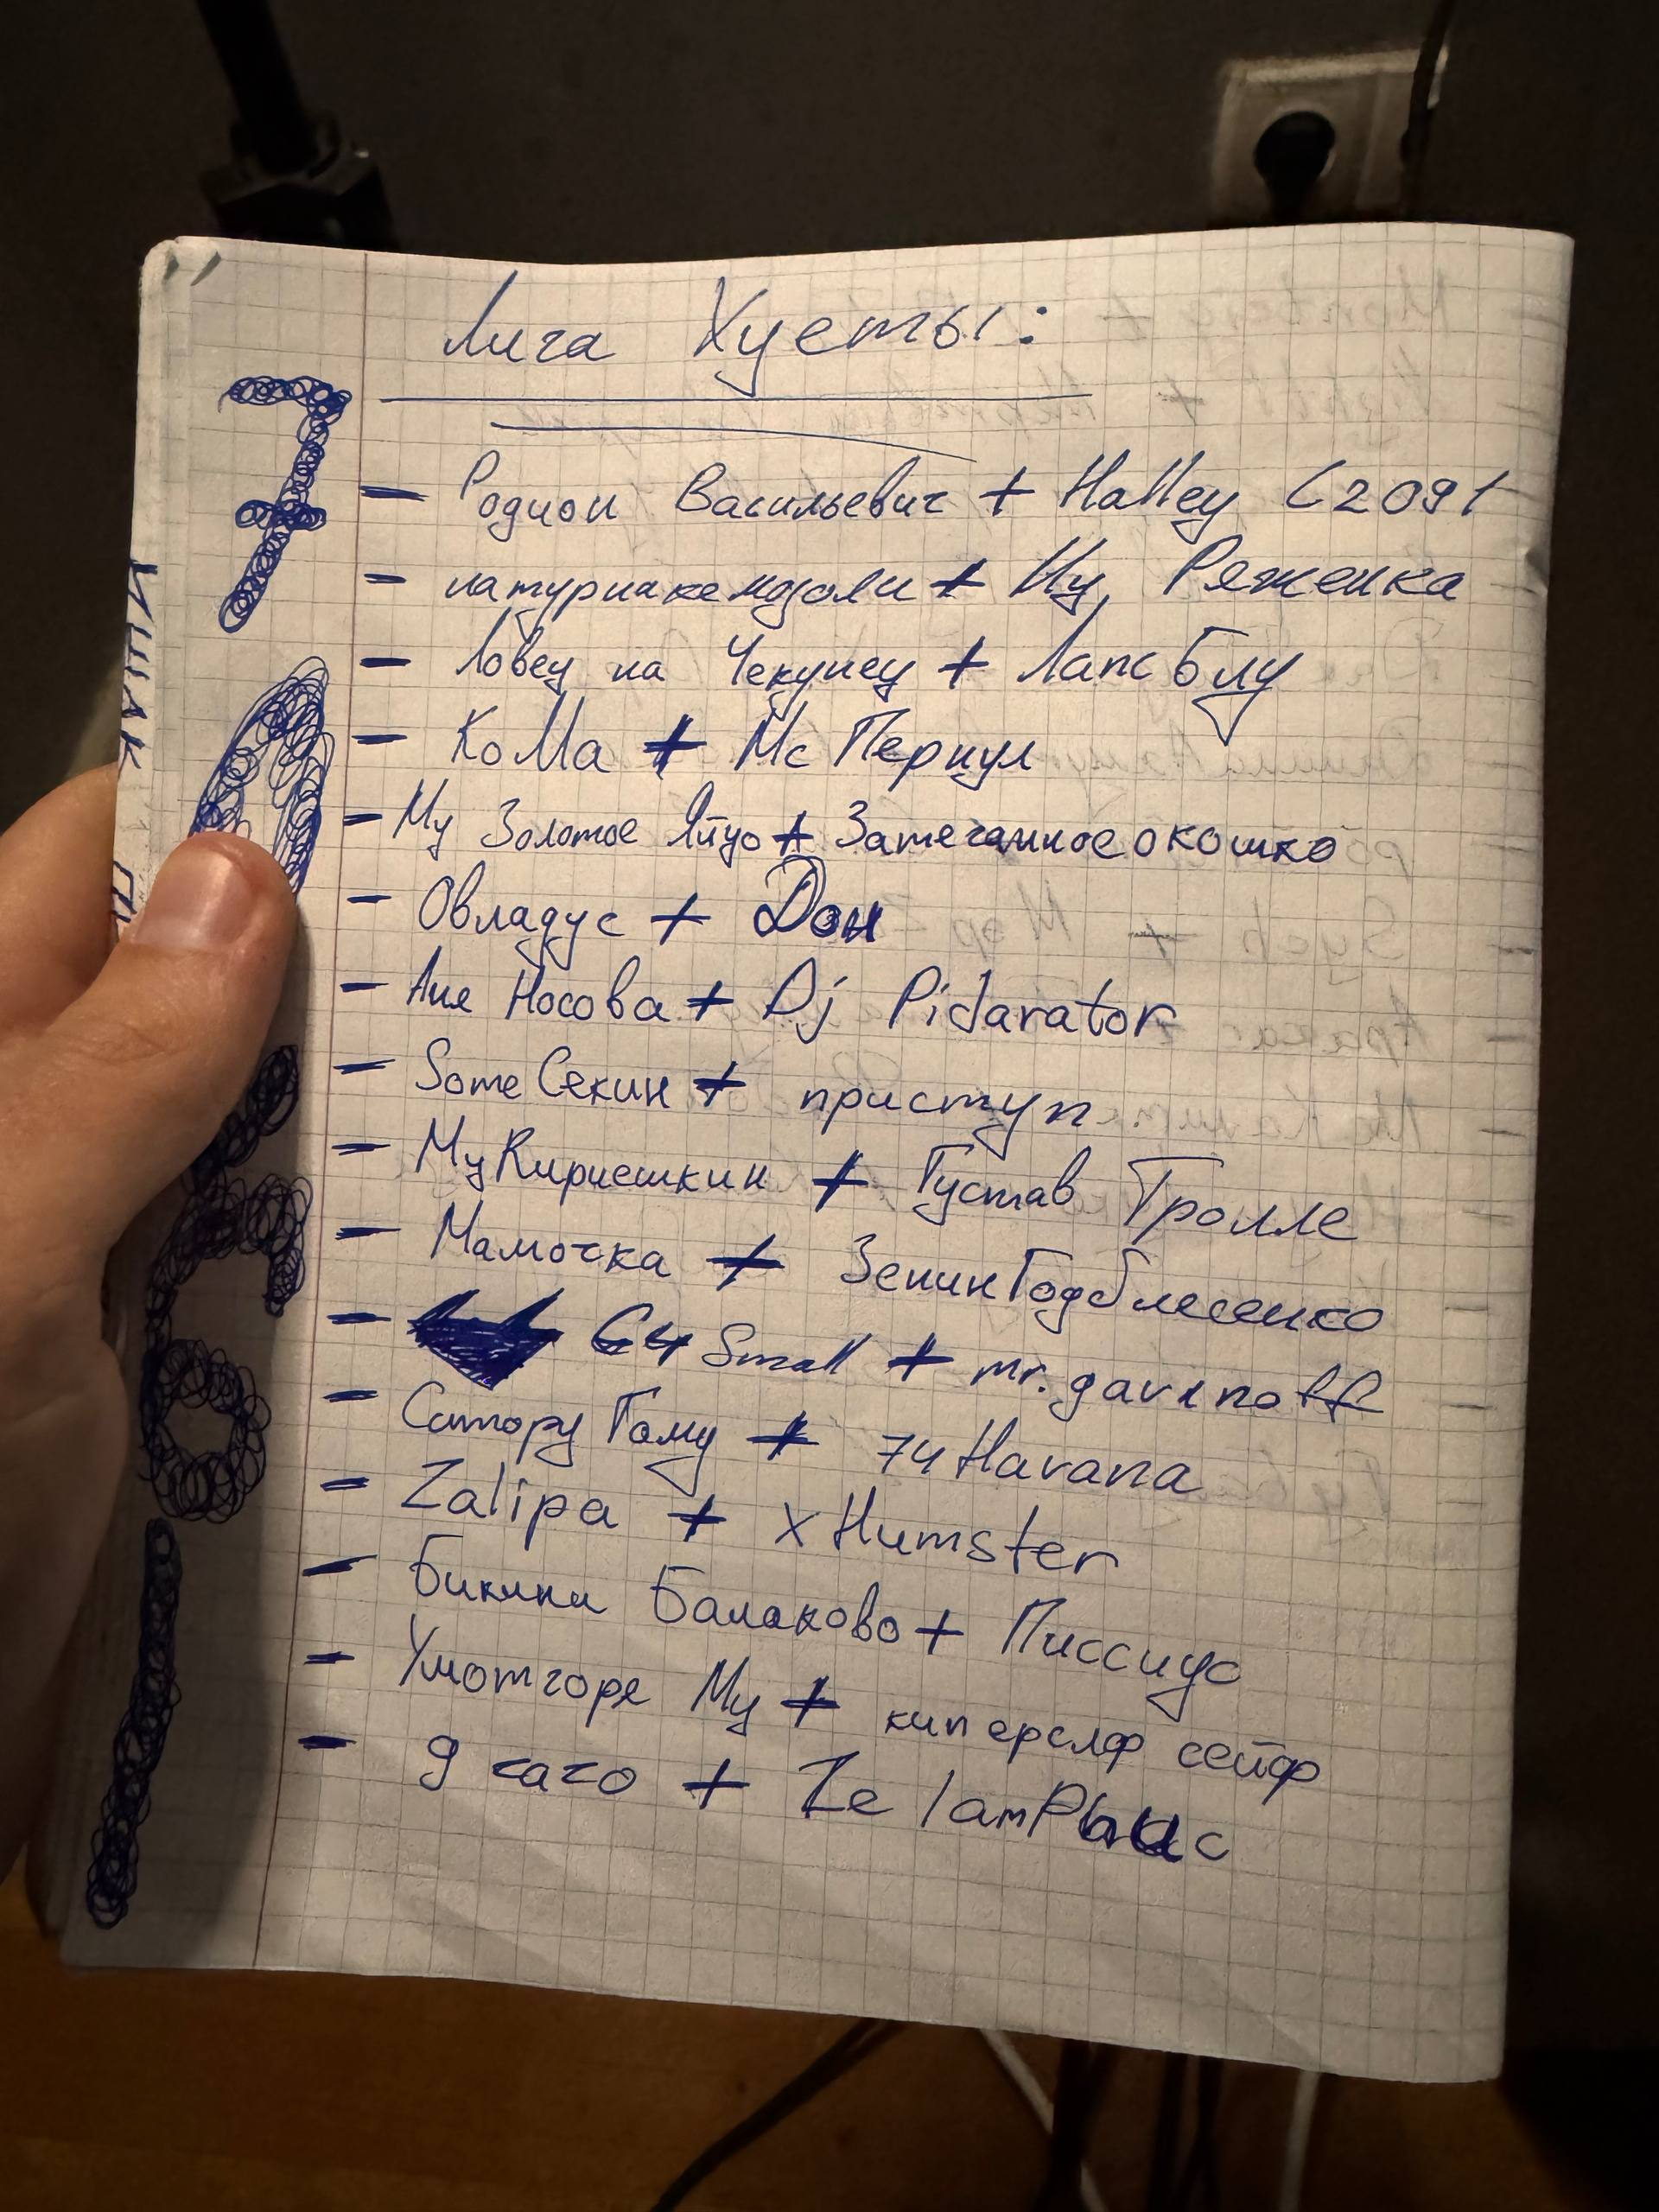 Лига Хуеты:
— Родион Васильевич + Halley C2091
— натурнакемдоли + Ну, Ряженка
— Ловец на Чекунец + Лапс блу
— КоМа + Мс Пернул
— Му Золотое Яйцо + Затечанное окошко
— Овладус + Дон
— Аня Носова + Dj Pidarator
— Some Секин + приступ
— Му Кириешкин + Густав Тролле
— Мамочка + ЗенинГодблесенко
— C4 Small + mr. gavinoff
— Сатору Гому + 74 Havana
— Zalipa + x Humster
— Бикини Балаково + Писсиус
— Умотгоре Му + киперслф сейф
— 9 гаго +
7